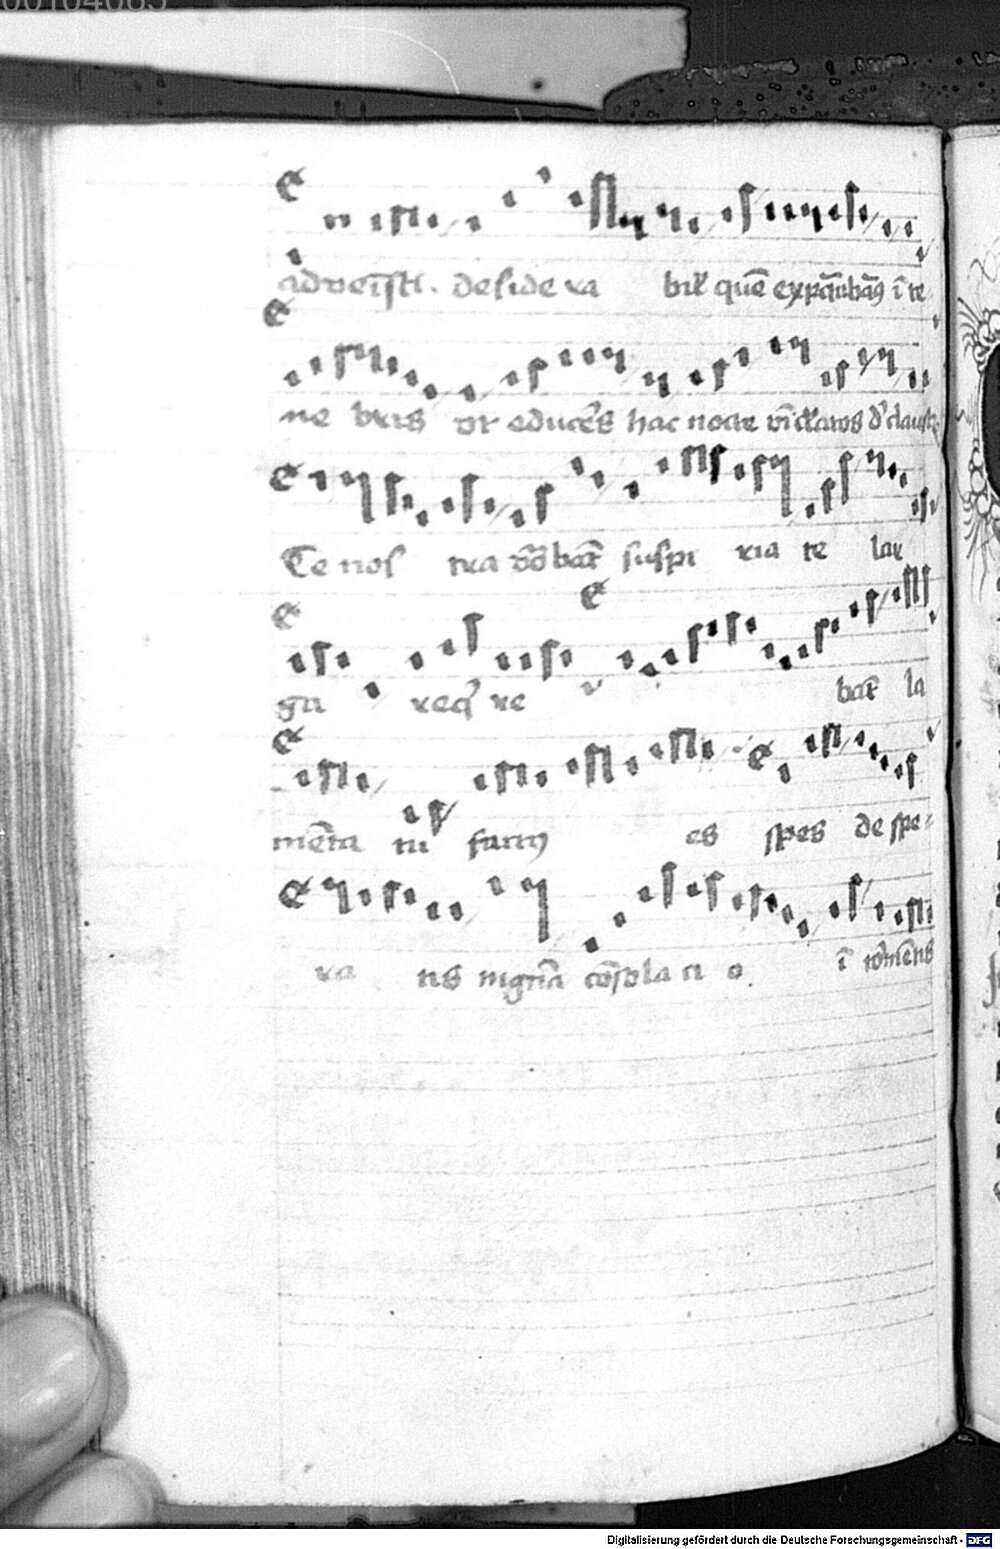 00104085
advenīsti. deside ra bil' quē expectabam9 ī te
ne bris ut educe's hac nocte vīculatos d' claustr
Te nos tra vo'bāt suspi ria te lar
ga req're bāt la
mēta tu fact9 es spes de spe
ra tis magna cōsola ti o. ī tormētis
Digitalisierung gefördert durch die Deutsche Forschungsgemeinschaft - DFG